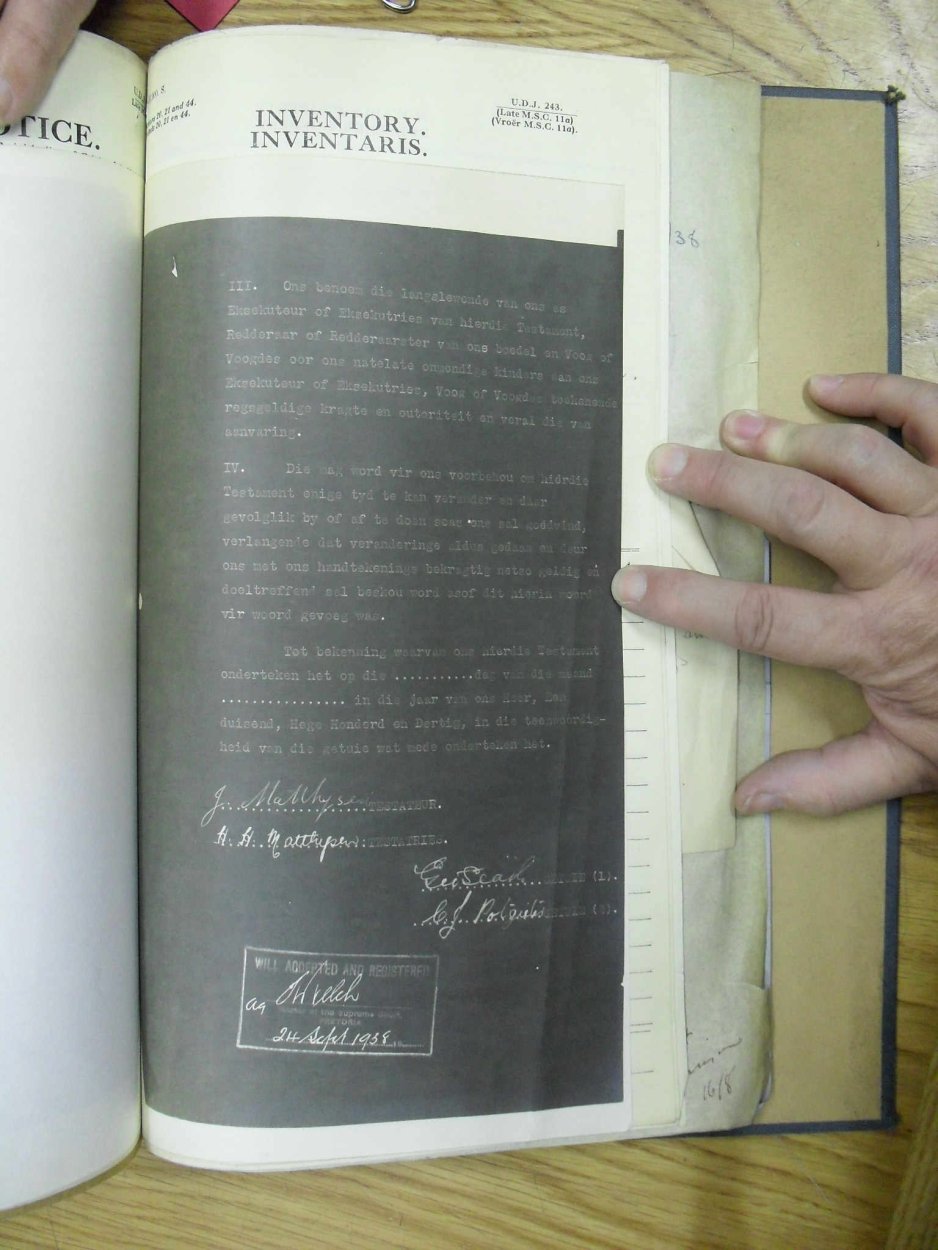 OTICE.
20, 21 and 44.
20, 21 en 44.
INVENTORY.
INVENTARIS.
U.D.J. 243.
(Late M.S.C. 11a)
(Vroër M.S.C. 11a).
38
III. Ons benoem die langslewende van ons as
Eksekuteur of Eksekutries van hierdie Testament,
Redderaar of Redderaarster van ons boedel en Voog of
Voogdes oor ons natelate onmondige kinders aan ons
Eksekuteur of Eksekutries, Voog of Voogdes toekenende
regsgeldige kragte en outoriteit en veral die van
aanvaring.
IV. Die mag word vir ons voorbehou om hierdie
Testament enige tyd te kan verander en daar
gevolglik by of af te doen soas ons sal goedvind,
verlangende dat veranderinge aldus gedaan en deur
ons met ons handtekenings bekragtig netso geldig en
doeltreffend sal beskou word asof dit hierin woord
vir woord gevoeg was.
Tot bekenning waarvan ons hierdie Testament
onderteken het op die ...........dag van die maand
................. in die jaar van ons Heer, Een
duisend, Nege Honderd en Dertig, in die teenwoordig-
heid van die getuie wat mede onderteken het.
J. Matthysen TESTATEUR.
H. H. Matthysen: TESTATRIES.
GETUIE (1).
C. J. Potgieter GETUIE (2).
WILL ACCEPTED AND REGISTERED
ag
Master of the Supreme Court,
PRETORIA
24 Sept 1938
16/8